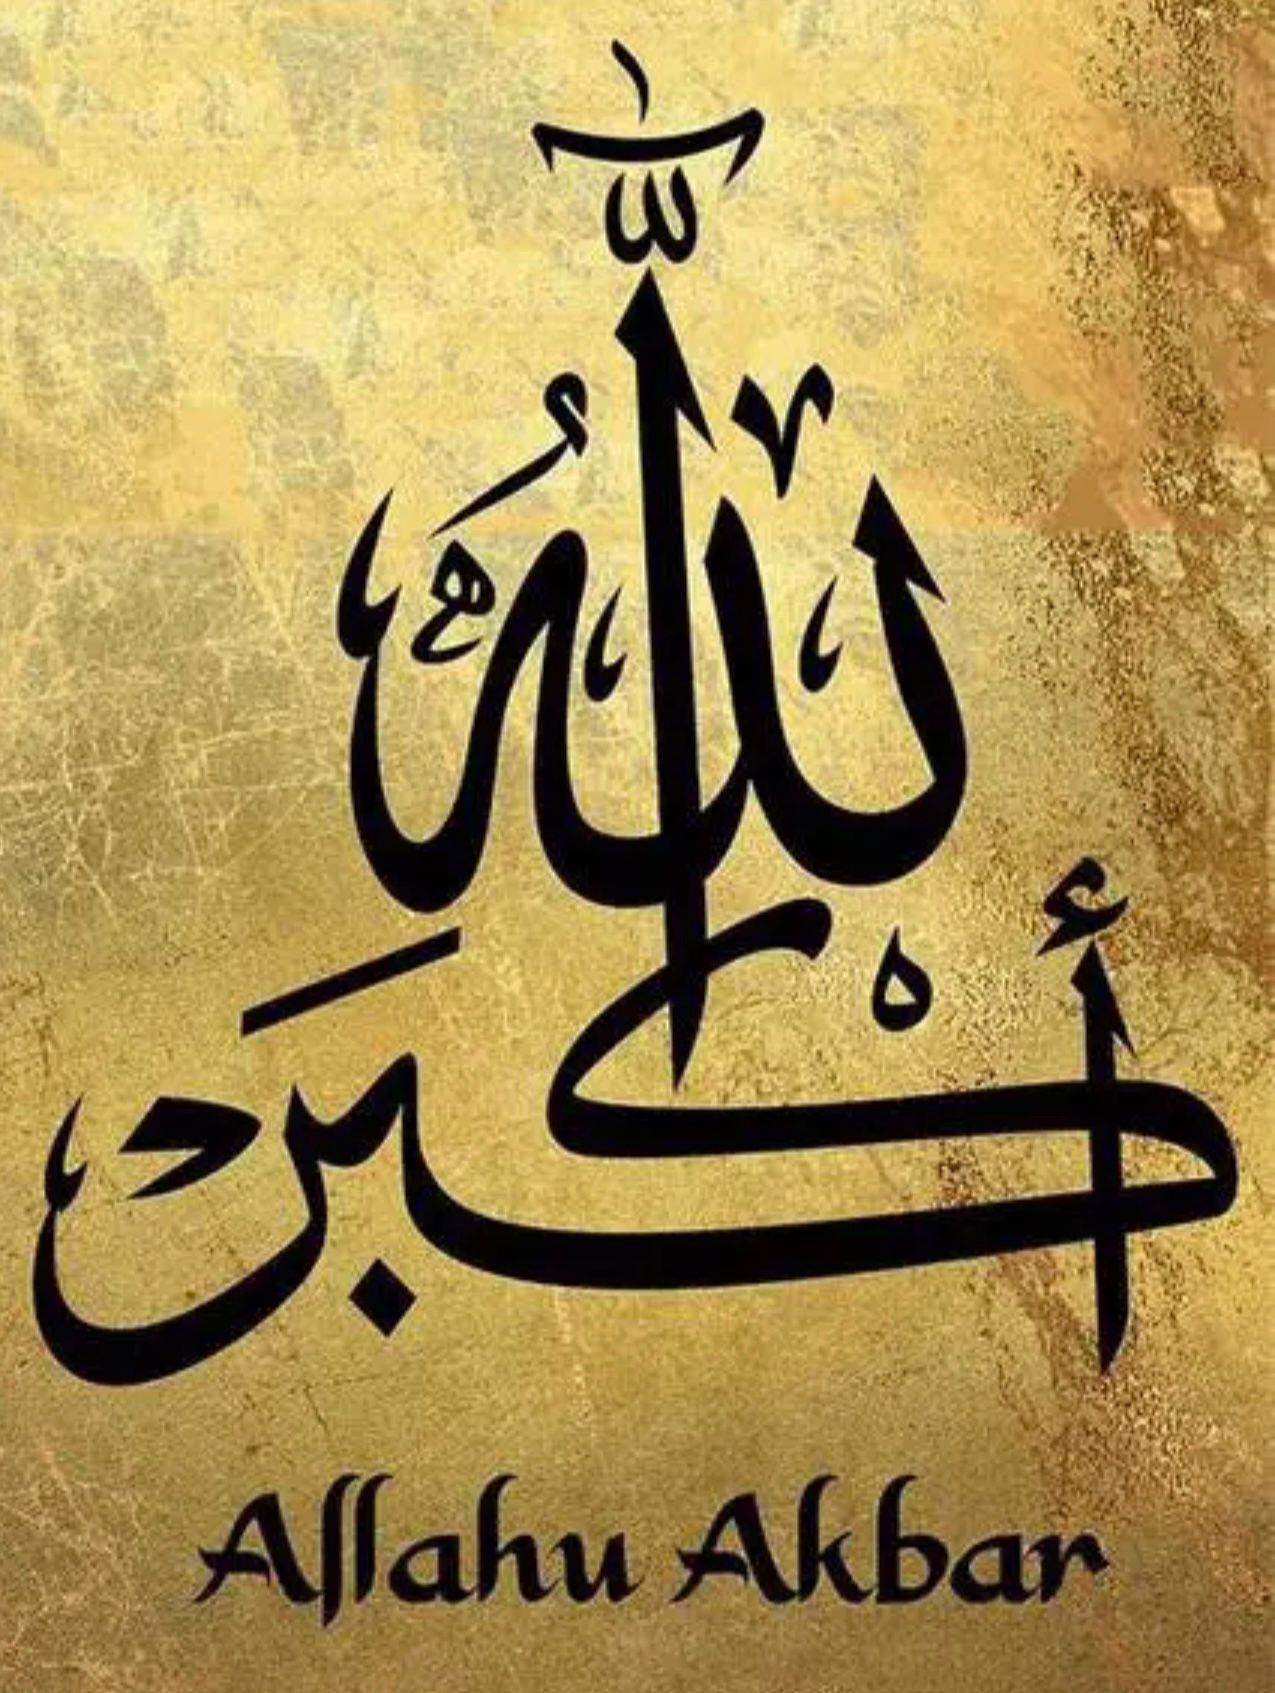 اللّٰهُ
أَكْبَر
Allahu Akbar